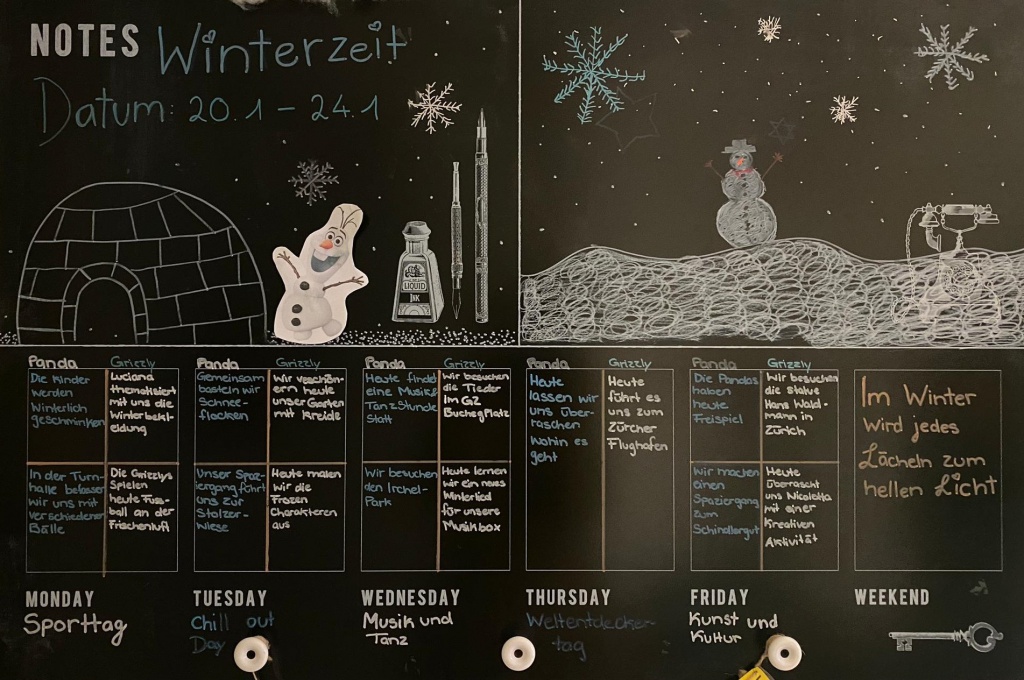 NOTES Winterzeit
Datum: 20.1 - 24.1
LIQUID
INK
Panda
Die Kinder
werden
Winterlich
geschminken
In der Turn-
halle befassen
wir uns mit
verschiedenen
Bälle
Grizzly
Luciand
thematisiert
mit uns die
Winterbekl-
eidung
Die Grizzlys
Spielen
heute Fuss-
ball an der
Frischenluft
Panda
Gemeinsam
basteln wir
Schnee-
flocken
Unser Spaz-
iergang führt
uns zur
Stolzer-
wiese
Grizzly
Wir verschön-
ern heute
unser Garten
mit Kreide
Heute malen
wir die
Frozen
Charakteren
aus
Panda
Heute findet
eine Musik&
Tanzstunde
Statt
Wir besuchen
den Irchel-
Park
Grizzly
Wir besuchen
die Tieder
im GZ
Buchegplatz
Heute lernen
wir ein neues
Winterlied
für unsere
Musikbox
Panda
Heute
lassen wir
uns über-
raschen
Wohin es
geht
Grizzly
Heute
führt es
uns zum
Zürcher
Flughafen
Panda
Die Pandas
haben
heute
Freispiel
Wir machen
einen
Spaziergang
zum
Schindlergut
Grizzly
Wir besuchen
die Statue
Hans Wald-
mann in
Zürich
Heute
überrascht
uns
mit einer
Kreativen
Aktivität
Im Winter
wird jedes
Lächeln zum
hellen Licht
MONDAY
Sporttag
TUESDAY
Chill out
Day
WEDNESDAY
Musik und
Tanz
THURSDAY
Weltentdecker-
tag
FRIDAY
Kunst und
Kultur
WEEKEND